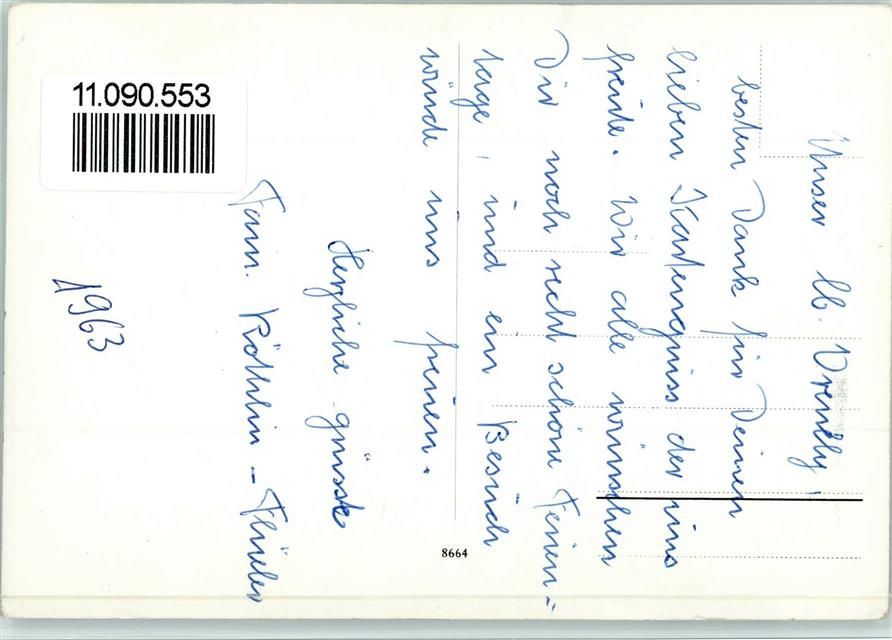 Unser lb. Vrenely!
besten Dank für Deinen
lieben Kartengruss der uns
freute. Wir alle wünschen
Dir noch recht schöne Ferien-
tage, und ein Besuch
würde uns freuen.
Herzliche grüsse
Fam. Röthlin - Flüeler
1963
11.090.553
8664